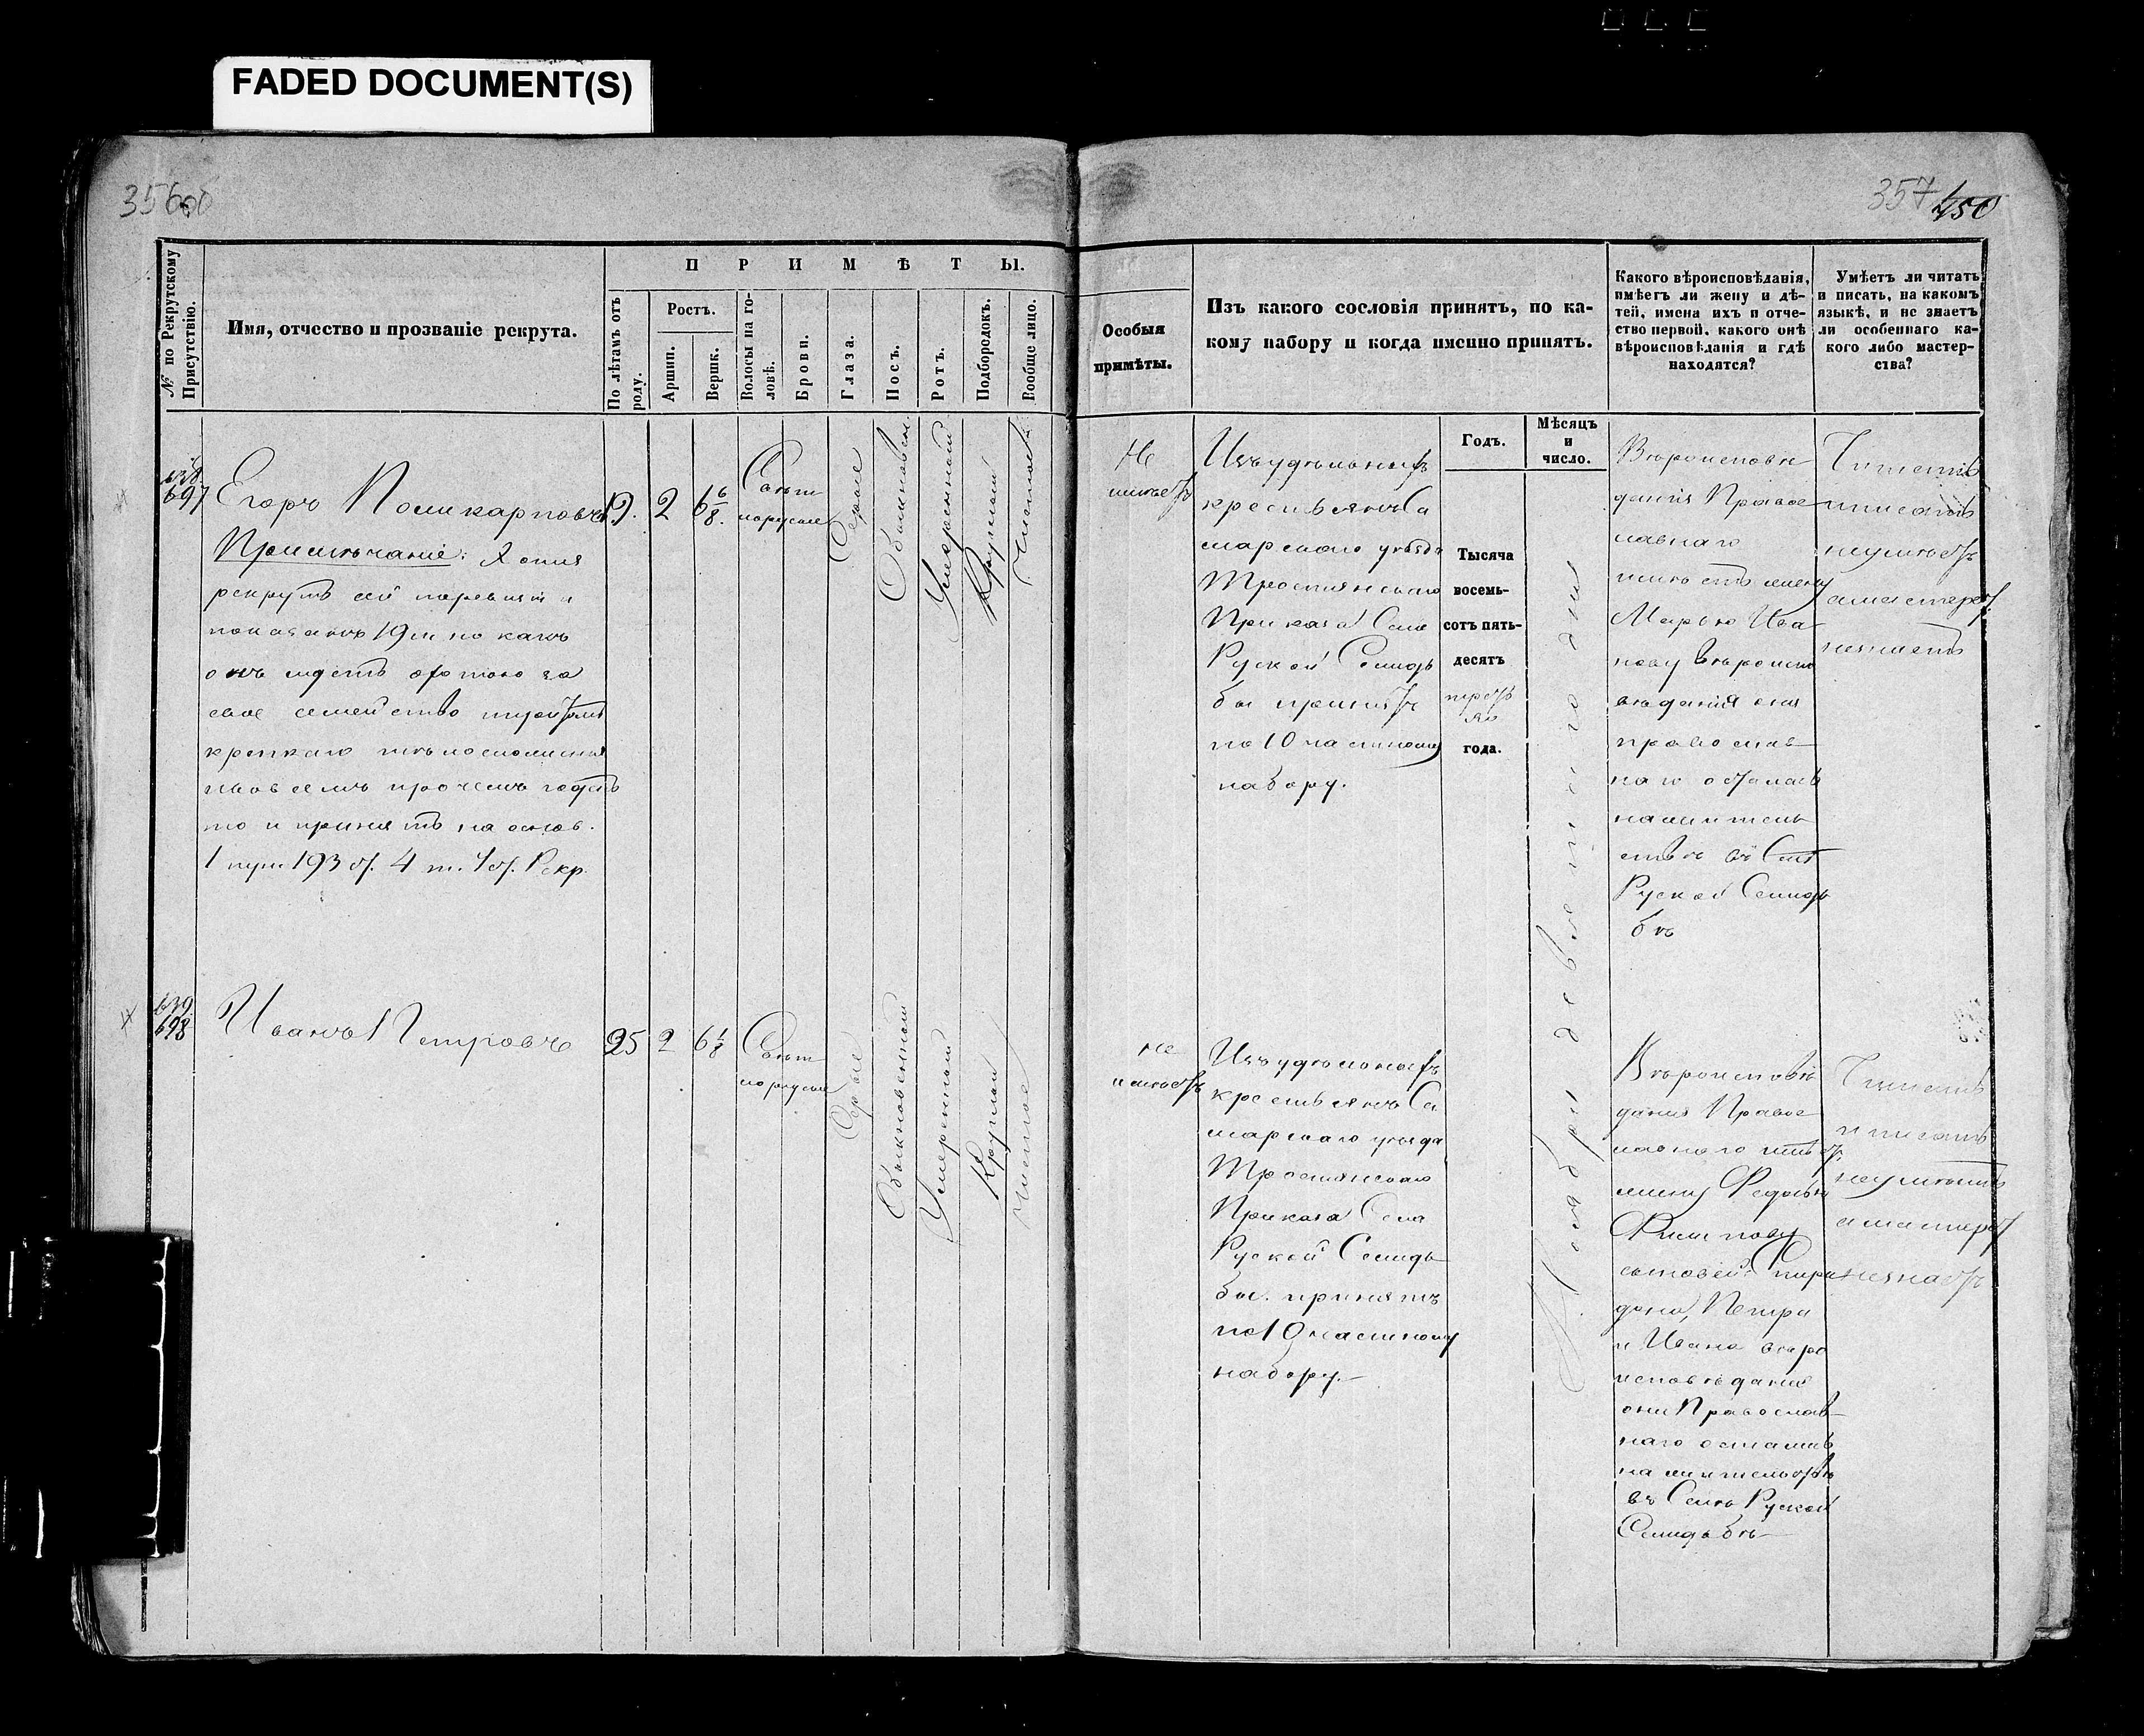 FADED DOCUMENT(S)
356об
357
450
№ по Рекрутскому Присутствію.
Имя, отчество и прозваніе рекрута.
ПРИМѢТЫ.
По лѣтамъ отъ роду.
Ростъ.
Аршин.
Вершк.
Волосы на головѣ.
Брови.
Глаза.
Носъ.
Ротъ.
Подбородокъ.
Вообще лицо.
Особыя
примѣты.
Изъ какого сословія принятъ, по ка-
кому набору и когда именно принятъ.
Какого вѣроисповѣданія,
имѣетъ ли жену и дѣ-
тей, имена ихъ и отче-
ство первой, какого онѣ
вѣроисповѣданія и гдѣ
находятся?
Умѣетъ ли читать
и писать, на какомъ
языкѣ, и не знаетъ
ли особеннаго ка-
кого либо мастер-
ства?
Годъ.
Мѣсяцъ
и
число.
638.
697
Егоръ Поликарповъ
Примѣчаніе: Хотя
рекрутъ сей по ревизіи и
показанъ 19ти но какъ
онъ идетъ охотою за
свое семейство притомъ
крепкаго тѣлосложенія
и во всемъ прочемъ годенъ
то и принятъ на основ.
1 пун. 193 ст. 4 т. Уст. Рекр.
19.
2
6 6/8.
Свѣт
лорусые
Серые
Обыкновен.
Умеренный
Круглый
Чистое
Не
имѣетъ
Изъ удѣльныхъ
крестьянъ Са
марскаго уѣзда
Тростянскаго
Приказа Села
Руской Селидь
бы принятъ
по 10 частному
набору.
Тысяча
восемь-
сотъ пять-
десятъ
третья
го
года.
Ноября девятого дня
Вѣроисповѣ
данія Правос
лавнаго
имѣетъ жену
Марью Ива
нову вѣроиспо
вѣданія она
православ
наго осталась
на житель
ствѣ въ Селѣ
Руской Селидь
бѣ
Читать
и писать
неумѣетъ
а мастерст.
незнаетъ
639.
698
Иванъ Петровъ
25
2
6 1/8
Свѣт
лорусые
Серые
Обыкновенный
Умеренный
Круглый
Чистое
Не
имѣетъ
Изъ удѣльныхъ
крестьянъ Са
марскаго уѣзда
Тростянскаго
Приказа Села
Руской Селидь
бы. принятъ
по 10 частному
набору.
Вѣроисповѣ
данія Правос
лавнаго имѣет.
жену Федосью
Филипову
сыновей: Спири
дона, Петра
и Ивана вѣро
исповѣданія
они Православ
наго остались
на жительствѣ
въ Селѣ Руской
Селидьбѣ
Читать
и писать
неумѣетъ
а мастерст
незнаетъ